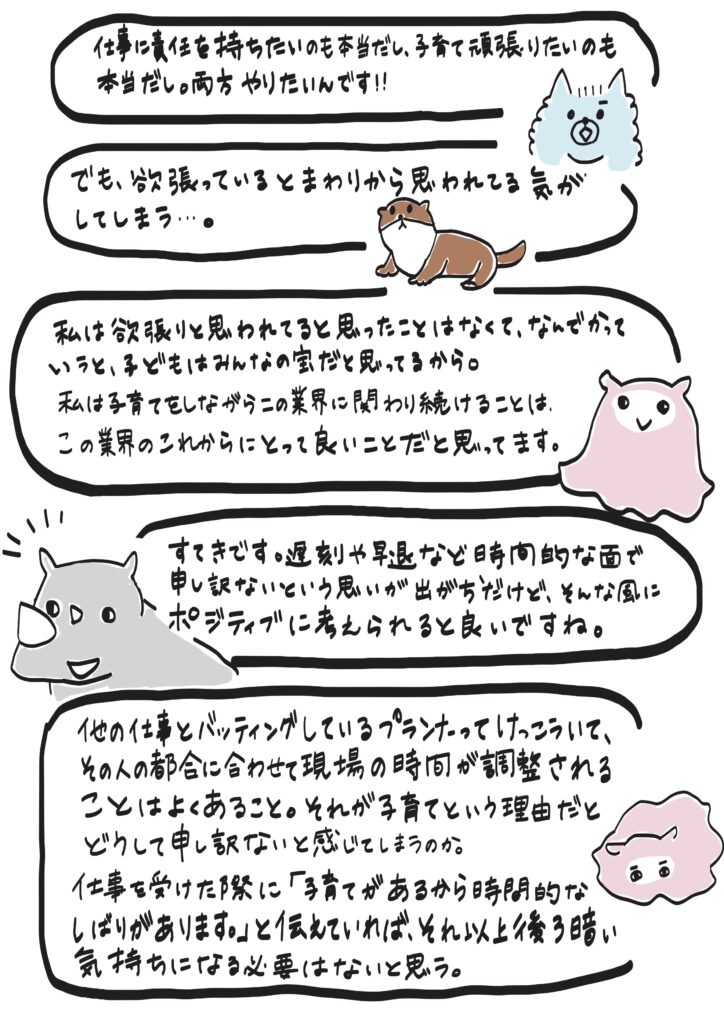 仕事に責任を持ちたいのも本当だし、子育て頑張りたいのも
本当だし。両方やりたいんです!!
でも、欲張っているとまわりから思われてる気が
してしまう…。
私は欲張りと思われてると思ったことはなくて、なんでかって
いうと、子どもはみんなの宝だと思ってるから。
私は子育てをしながらこの業界に関わり続けることは、
この業界のこれからにとって良いことだと思ってます。
すてきです。遅刻や早退など時間的な面で
申し訳ないという思いが出がちだけど、そんな風に
ポジティブに考えられると良いですね。
他の仕事とバッティングしているプランナーってけっこういて、
その人の都合に合わせて現場の時間が調整される
ことはよくあること。それが子育てという理由だと
どうして申し訳ないと感じてしまうのか。
仕事を受けた際に「子育てがあるから時間的な
しばりがあります。」と伝えていれば、それ以上後ろ暗い
気持ちになる必要はないと思う。